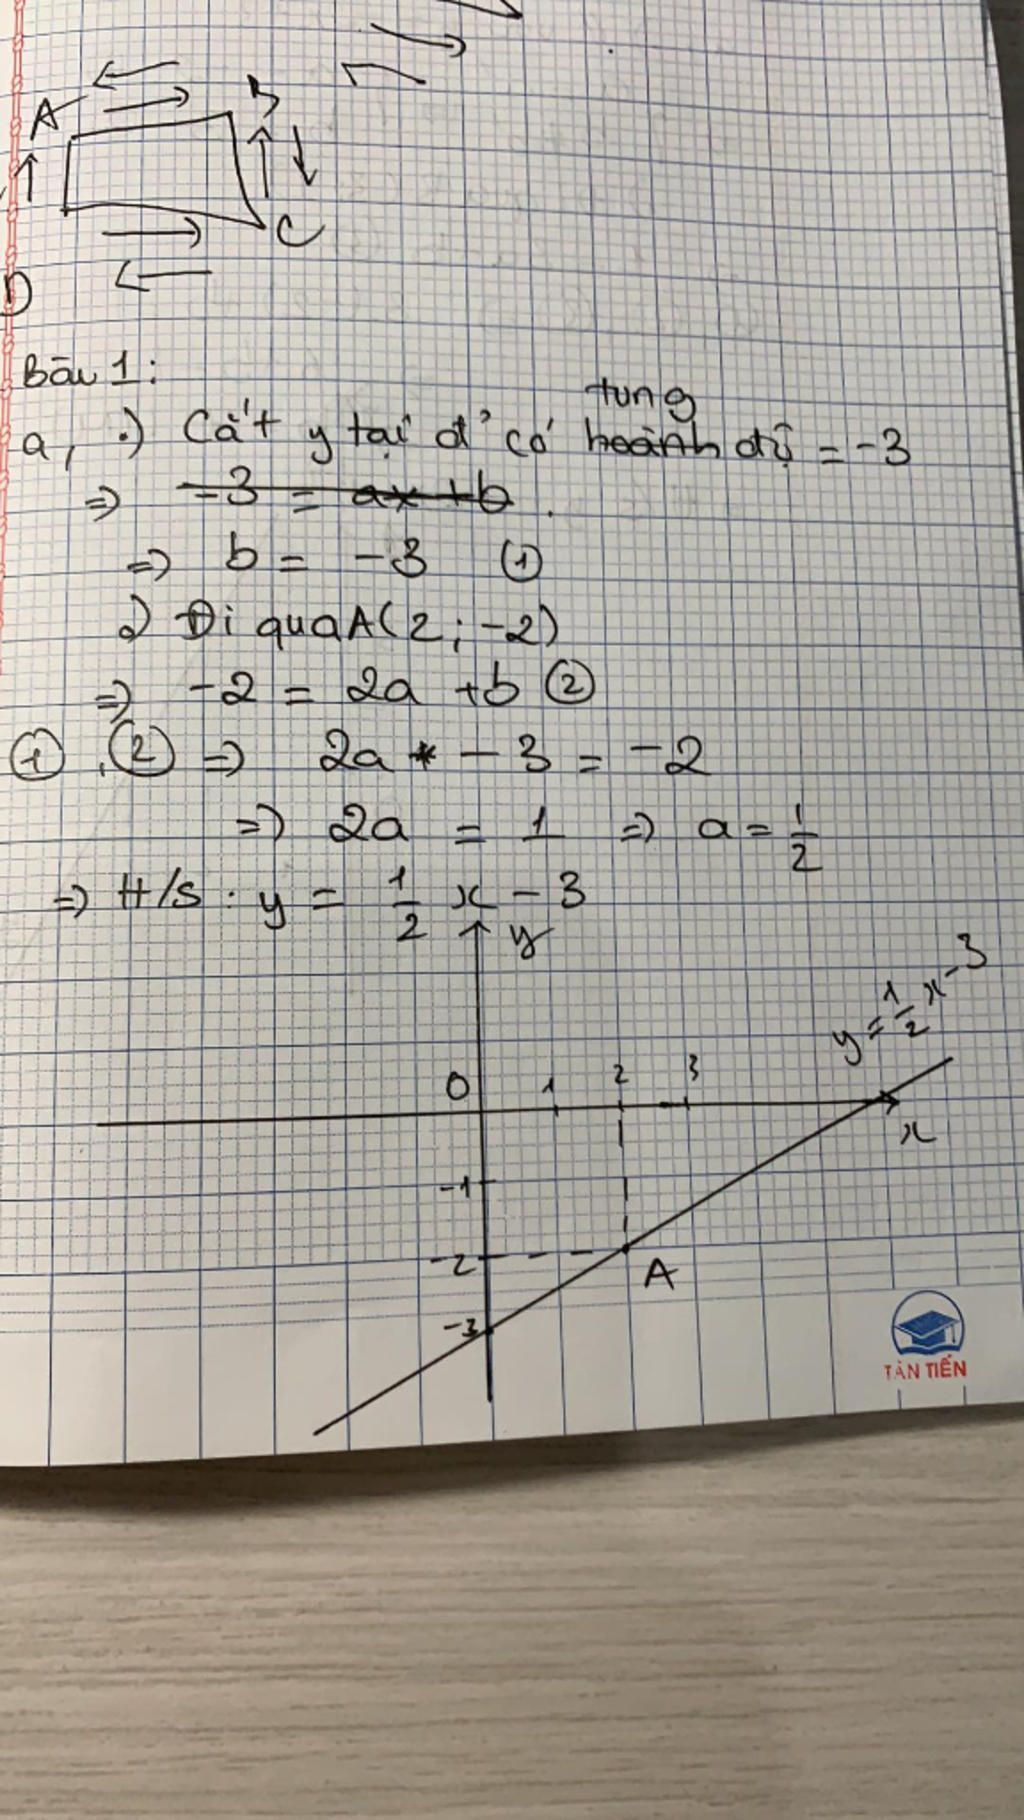 A B
C
D
Bài 1:
tung
a, .) Cắt y tại đ' có hoành độ = -3
=> -3 = ax + b.
=> b = -3 (1)
.) Đi qua A(2; -2)
=> -2 = 2a + b (2)
(1), (2) => 2a - 3 = -2
=> 2a = 1 => a = 1/2
=> H/s: y = 1/2 x - 3
y
y = 1/2 x - 3
O 1 2 3
x
-1
-2
A
-3
TÂN TIẾN